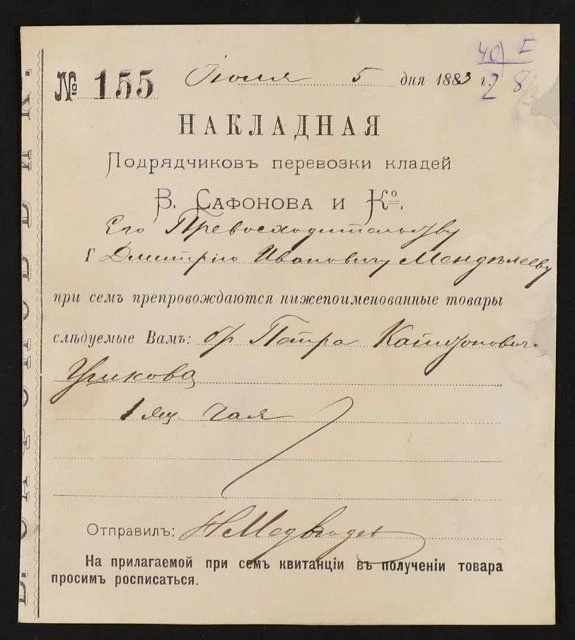 № 155 Июля 5 дня 1883 г.
НАКЛАДНАЯ
Подрядчиковъ перевозки кладей
В. Сафонова и Ко.
Его Превосходительству
Г Дмитрию Ивановичу Менделееву
при семъ препровождаются нижепоименованные товары
слѣдуемые Вамъ: от Петра Капитоновича
Ушкова
1 ящ. чая
Отправилъ: Н Медведев
На прилагаемой при семъ квитанціи въ полученіи товара
просимъ росписаться.